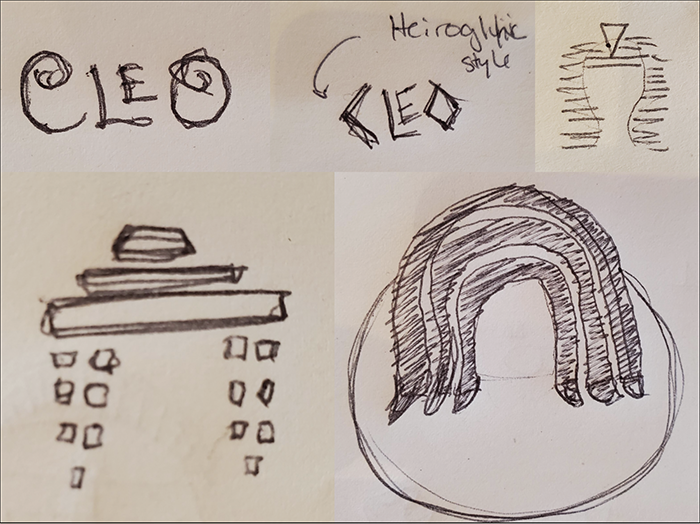 CLEO
Heiroglyphic
style
CLEO